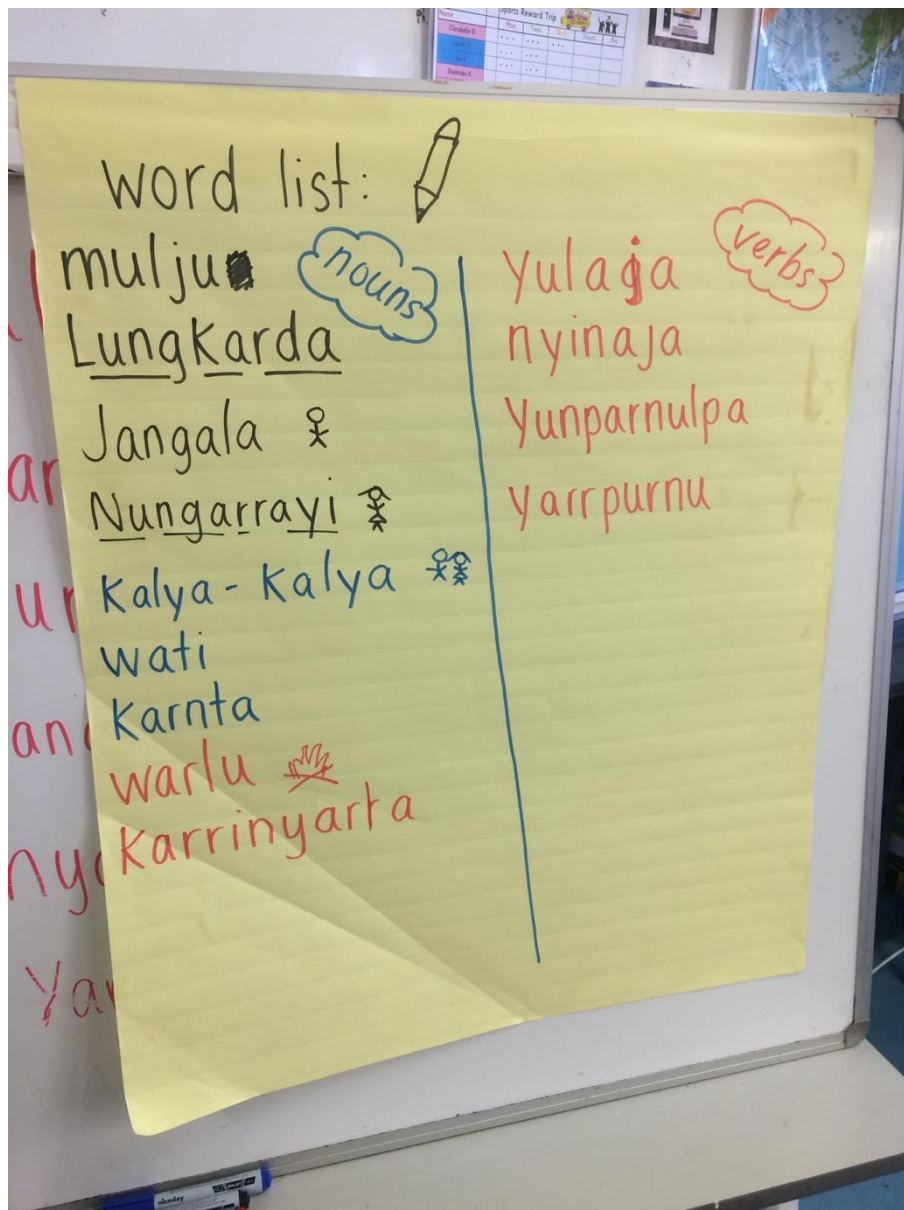 Name
Sports Reward Trip
Mon
Tues
Wed
Thurs
Fri
word list:
nouns
mulju
Lungkarda
Jangala
Nungarrayi
Kalya-Kalya
wati
Karnta
warlu
Karrinyarta
verbs
Yulaja
nyinaja
Yunparnulpa
Yarrpurnu
ar
ur
and
nya
Yar
niceday